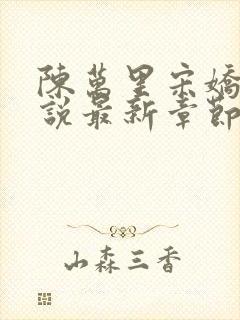 陳萬里宋嬌
說最新章節
山森三香